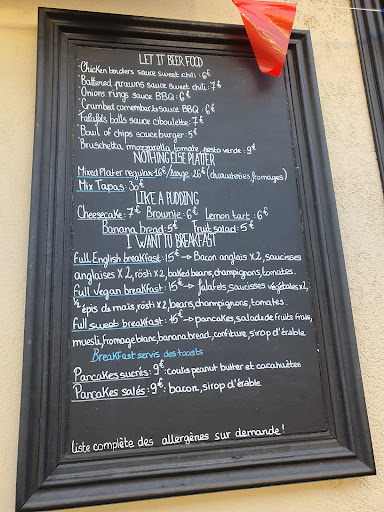 LET IT BEER FOOD
Chicken tenders sauce sweet chili : 6€
Battered prawns sauce sweet chili : 7€
Onions rings sauce BBQ : 6€
Crumbed camemberts sauce BBQ : 6€
Falafels balls sauce ciboulette : 7€
Bowl of chips sauce burger : 5€
Bruschetta mozzarella, tomate, pesto verde : 9€
NOTHING ELSE PLATTER
Mixed Plater regular : 16€ / large : 26€ (charcuteries fromages)
Mix Tapas : 30€
LIKE A PUDDING
Cheesecake : 7€ Brownie : 6€ Lemon tart : 6€
Banana bread : 5€ Fruit salad : 5€
I WANT TO BREAKFAST
Full English breakfast : 15€ → Bacon anglais x2, saucisses
anglaises x2, rösti x2, baked beans, champignons, tomates.
Full Vegan breakfast : 15€ → falafels, saucisses végétales x2,
½ épis de maïs, rösti x2, beans, champignons, tomates.
Full sweet breakfast : 15€ → pancakes, salade de fruits frais,
muesli, fromage blanc, banana bread, confiture, sirop d'érable
Breakfast servis des toasts
Pancakes sucrés : 9€ : coulis peanut butter et cacahuètes
Pancakes salés : 9€ : bacon, sirop d'érable
liste complète des allergènes sur demande !